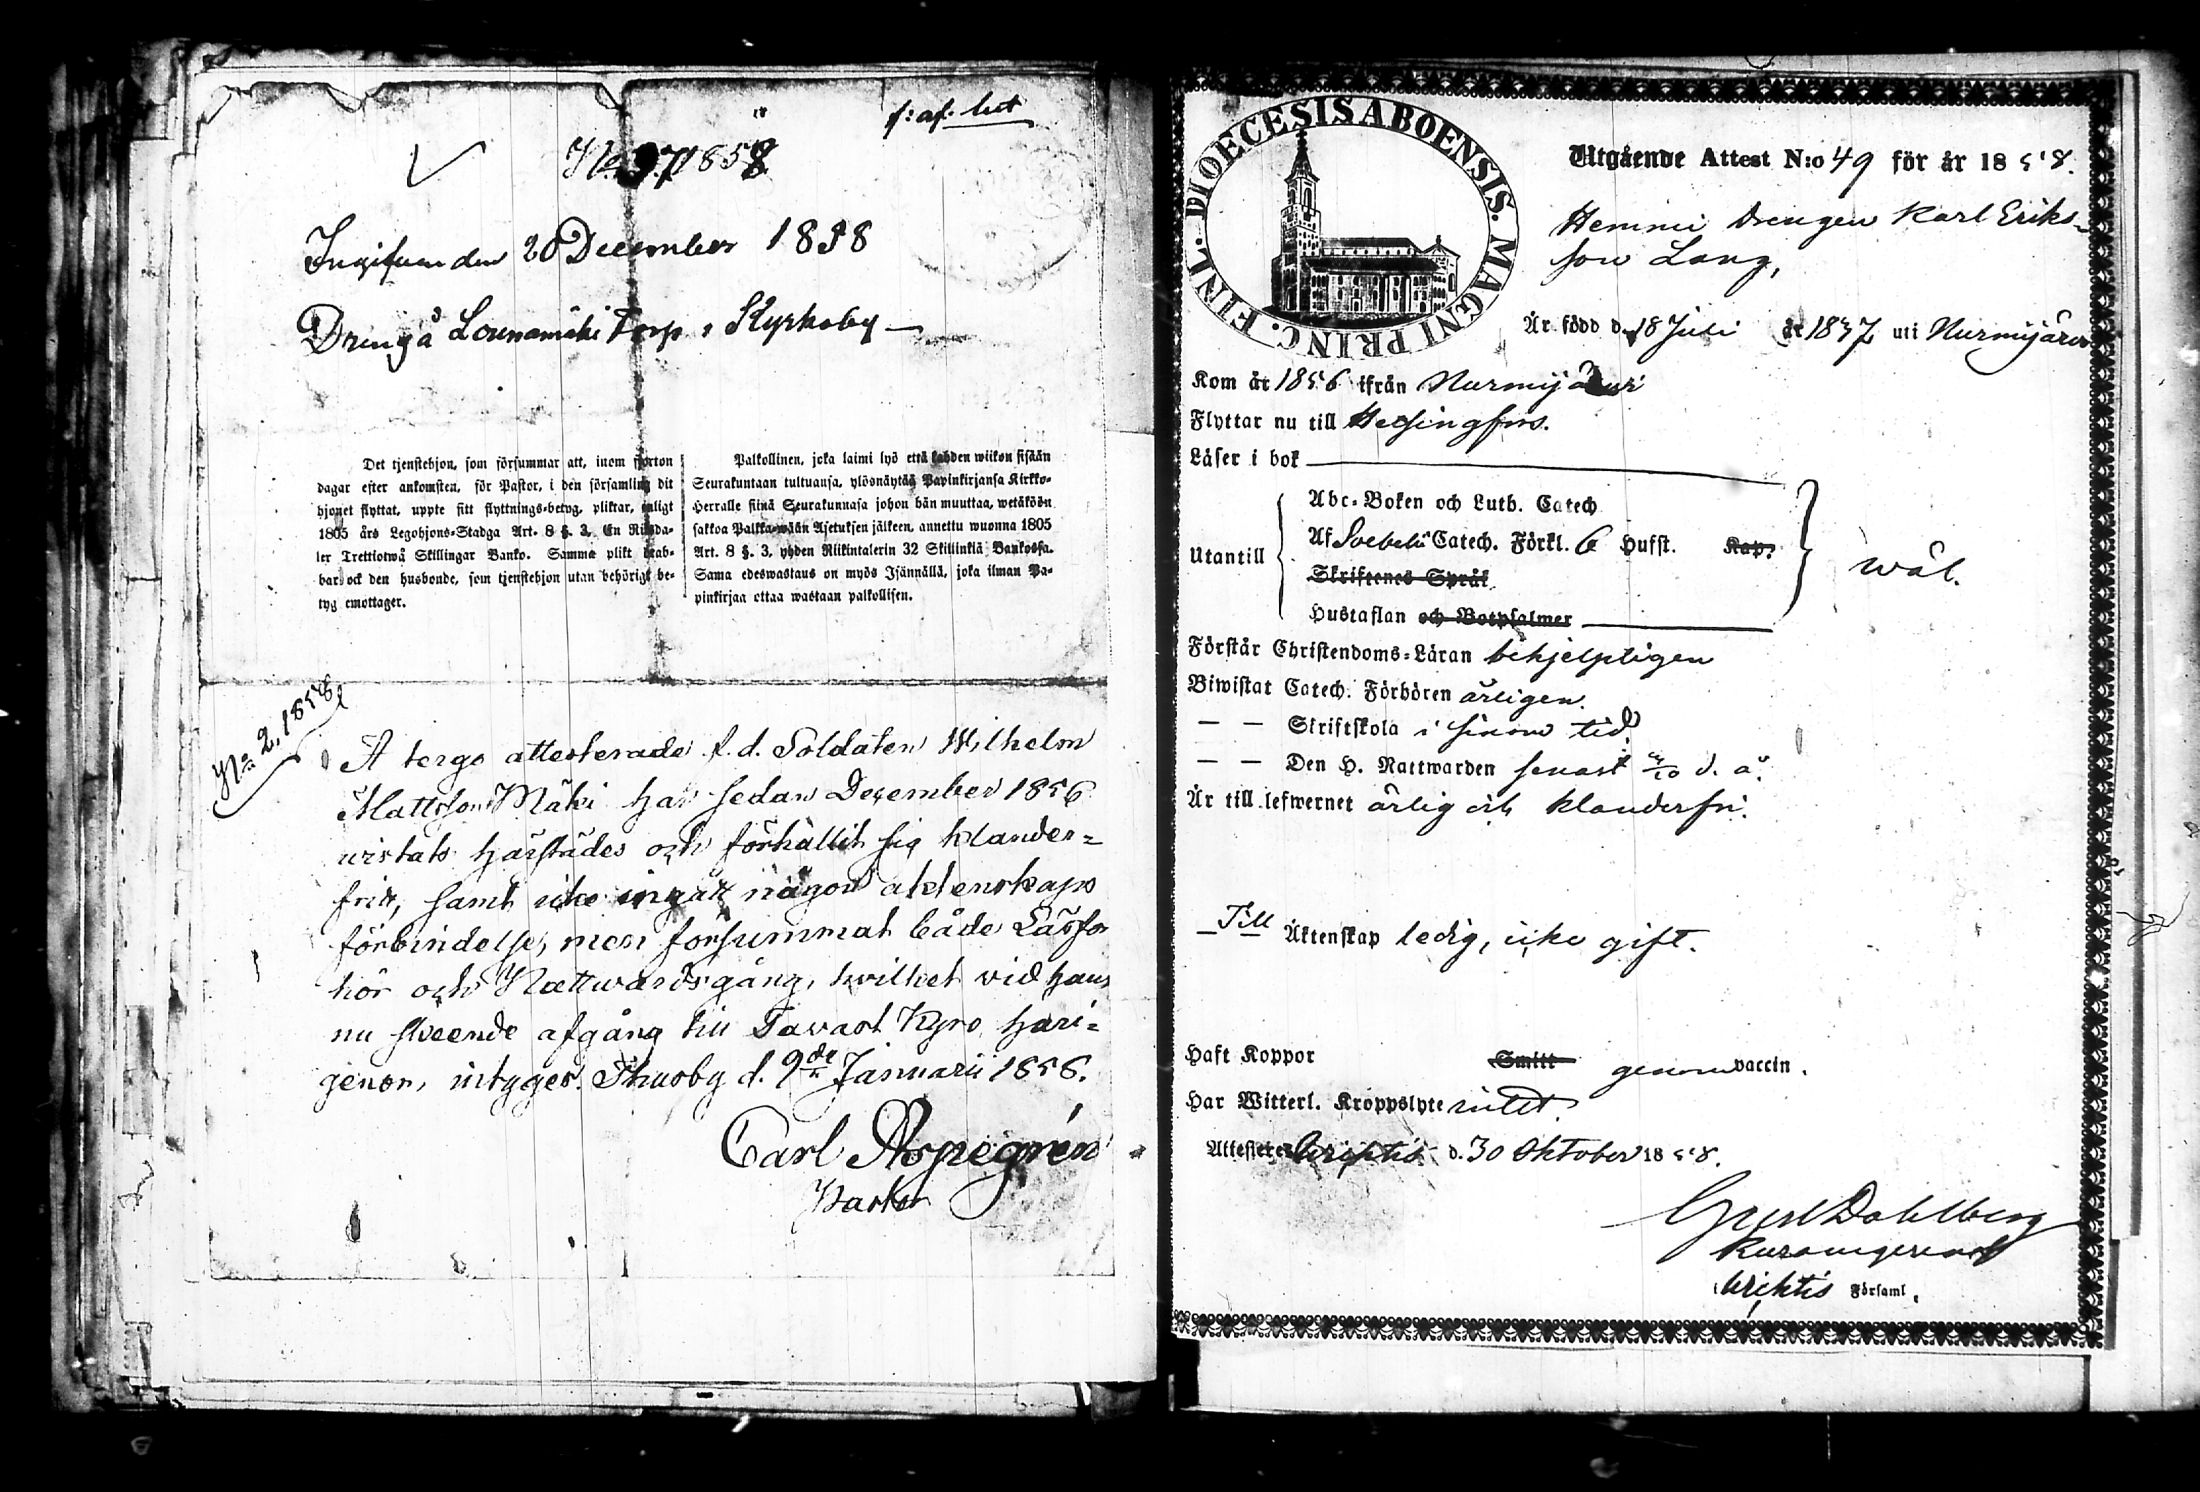 f: af. bet
No 37 1858
Ingifven den 20 December 1858
Dreng å Lounamäki Torp i Kyrkoby
Det tjenstehjon, som försummar att, inom fjorton
dagar efter ankomsten, för Pastor, i den församling dit
hjonet flyttat, uppte sitt flyttnings-betyg, pliktar, enligt
1805 års Legohjons-Stadga Art. 8 §. 3. En Riksda-
ler Trettiotwå Skillingar Banko. Samma plikt drab-
bar ock den husbonde, som tjenstehjon utan behörigt be-
tyg emottager.
Palkollinen, joka laimi lyö että kahden wiikon sisään
Seurakuntaan tultuansa, ylösnäytää Papinkirjansa Kirkko-
Herralle siinä Seurakunnasa johon hän muuttaa, wetäköön
sakkoa Palkka-wään Asetuksen jälkeen, annettu wuonna 1805
Art. 8 §. 3, yhden Riikintalerin 32 Skillinkiä Bankossa.
Sama edeswastaus on myös Isännällä, joka ilman Pa-
pinkirjaa ottaa wastaan palkollisen.
No 2, 1858
A tergo attesterade f. d. Soldaten Wilhelm
Mattsson Mäki har sedan December 1856
vistats härstädes och förhållit sig klander=
fritt, samt icke ingått någon aktenskaps
förbindelse, men försummat både Läsför
hör och Nattwardsgång, hvilket vid hans
nu skeende afgång till Tavast Kyro hari=
genom, intyges. Thusby d. 9de Januarii 1858.
Carl Aspegrén
Pastor
DIOECESIS ABOENSIS. MAGNI PRINC. FINL.
Utgående Attest N:o 49 för år 1858.
Hemmi Drengen Karl Eriks=
son Lang,
Är född d. 18 Juli år 1837 uti Nurmijärvi
Kom år 1856 ifrån Nurmijärvi
Flyttar nu till Helsingfors.
Läser i bok
Abc-Boken och Luth. Catech.
Utantill
Af Svebelii Catech. Förkl. 6 Hufst. Kap.
wäl.
Skriftenes Språk
Hustaflan och Botpsalmer
Förstår Christendoms-Läran behjelpligen
Biwistat Catech. Förhören årligen.
— — Skriftskola i sinom tid
— — Den H. Nattwarden senast /10 d. å.
Är till lefwernet ärlig och klanderfri.
Till Äktenskap ledig, icke gift.
Haft Koppor Smitt genom vaccin.
Har Witterl. Kroppslyte intet.
Attesterer Wichtis d. 30 Oktober 1858.
Dahlberg
Wichtis Församl.